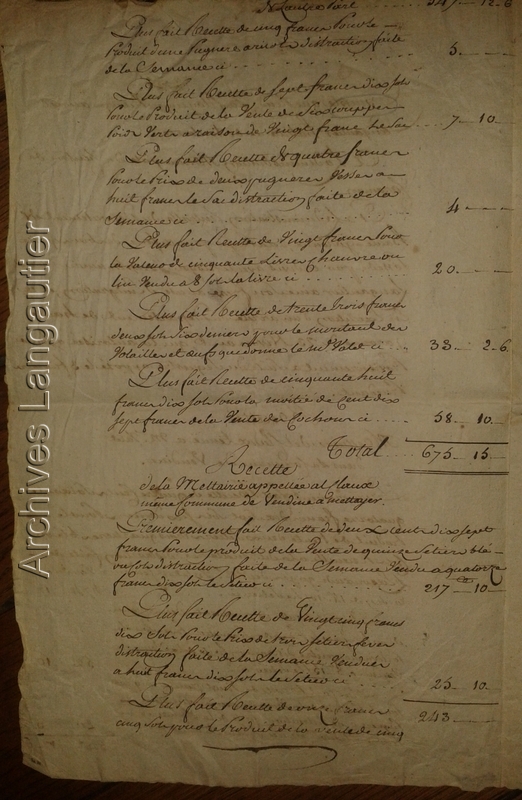 De l'autre Part ..... 547 — 12 - 6
Plus fait Recette de cinq francs Pour le
Produit d'une Pugnere distraction faite
de la Semance ci . . . . . 5
Plus fait Recette de sept francs dix sols
Pour le Produit de la Vente de
Pois Verts a raison de Vingt francs Le Sac 7 — 10
Plus fait Recette de quatre francs
Pour le Prix de deux pugneres Vesses a
huit francs le Sac distraction faite de la
Semance ci . . . . . 4
Plus fait Recette de Vingt francs Pour
la Valeur de cinquante Livres Chanvre ou
lin Vendu a 8 sols la livre ci . . . 20
Plus fait Recette de trente trois francs
deux sols Six deniers pour le montant des
Volailles et œufs que donne le Me Valet ci . . 33 — 2 - 6
Plus fait Recette de cinquante huit
francs dix sols Pour la moitié de Cent dix
sept francs de la Vente des Cochons ci . . 58 — 10
Total . . . 675 — 15
Recette
de la Mettairie appellée al
même Commune de Vendine a mettayer.
Premierement fait Recette de deux Cents dix sept
francs Pour le produit de la Vente de quinze Setiers blé
distraction faite de la Semance Vendu a quatorze
francs dix sols le Setier ci . . . 217 — 10
Plus fait Recette de Vingt cinq francs
dix Sols Pour le Prix de trois Setiers feves
distraction faite de la Semance Vendues
a huit francs dix sols le Setier ci . . . 25 — 10
243
Plus fait Recette de onze francs
cinq Sols pour le Produit de la Vente de cinq
Archives Langautier